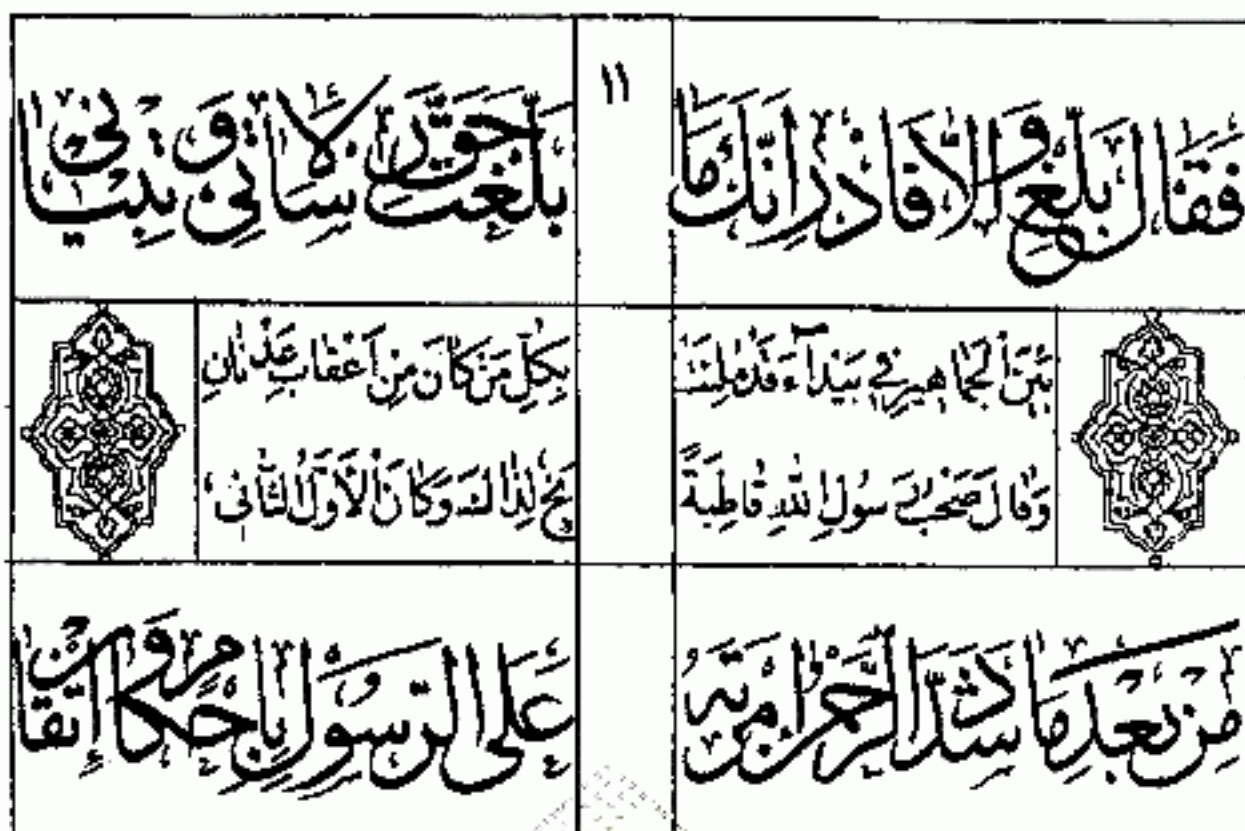 ١١
فَقَالَ بَلِّغْ وَ اِلَّا فَادْرِ اَنَّكَ مَا بَلَّغْتَ حَقَّ رِسَالَاتِي وَ تِبْيَانِي
بَيْنَ الْجَمَاهِيرِ فِي بَيْدَآءَ قَدْ مُلِئَتْ بِكُلِّ مَنْ كَانَ مِنْ اَعْقَابِ عَدْنَانِ
وَقَالَ صَحْبُ رَسُولِ اللهِ قَاطِبَةً بَخٍ لِذَاكَ وَكَانَ الْاَوَّلُ الثَّانِي
مِنْ بَعْدِ مَا شَدَّدَ الرَّحْمٰنُ اِمْرَتَهُ عَلَى الرَّسُولِ بِاِحْكَامٍ وَ إِتْقَانِ